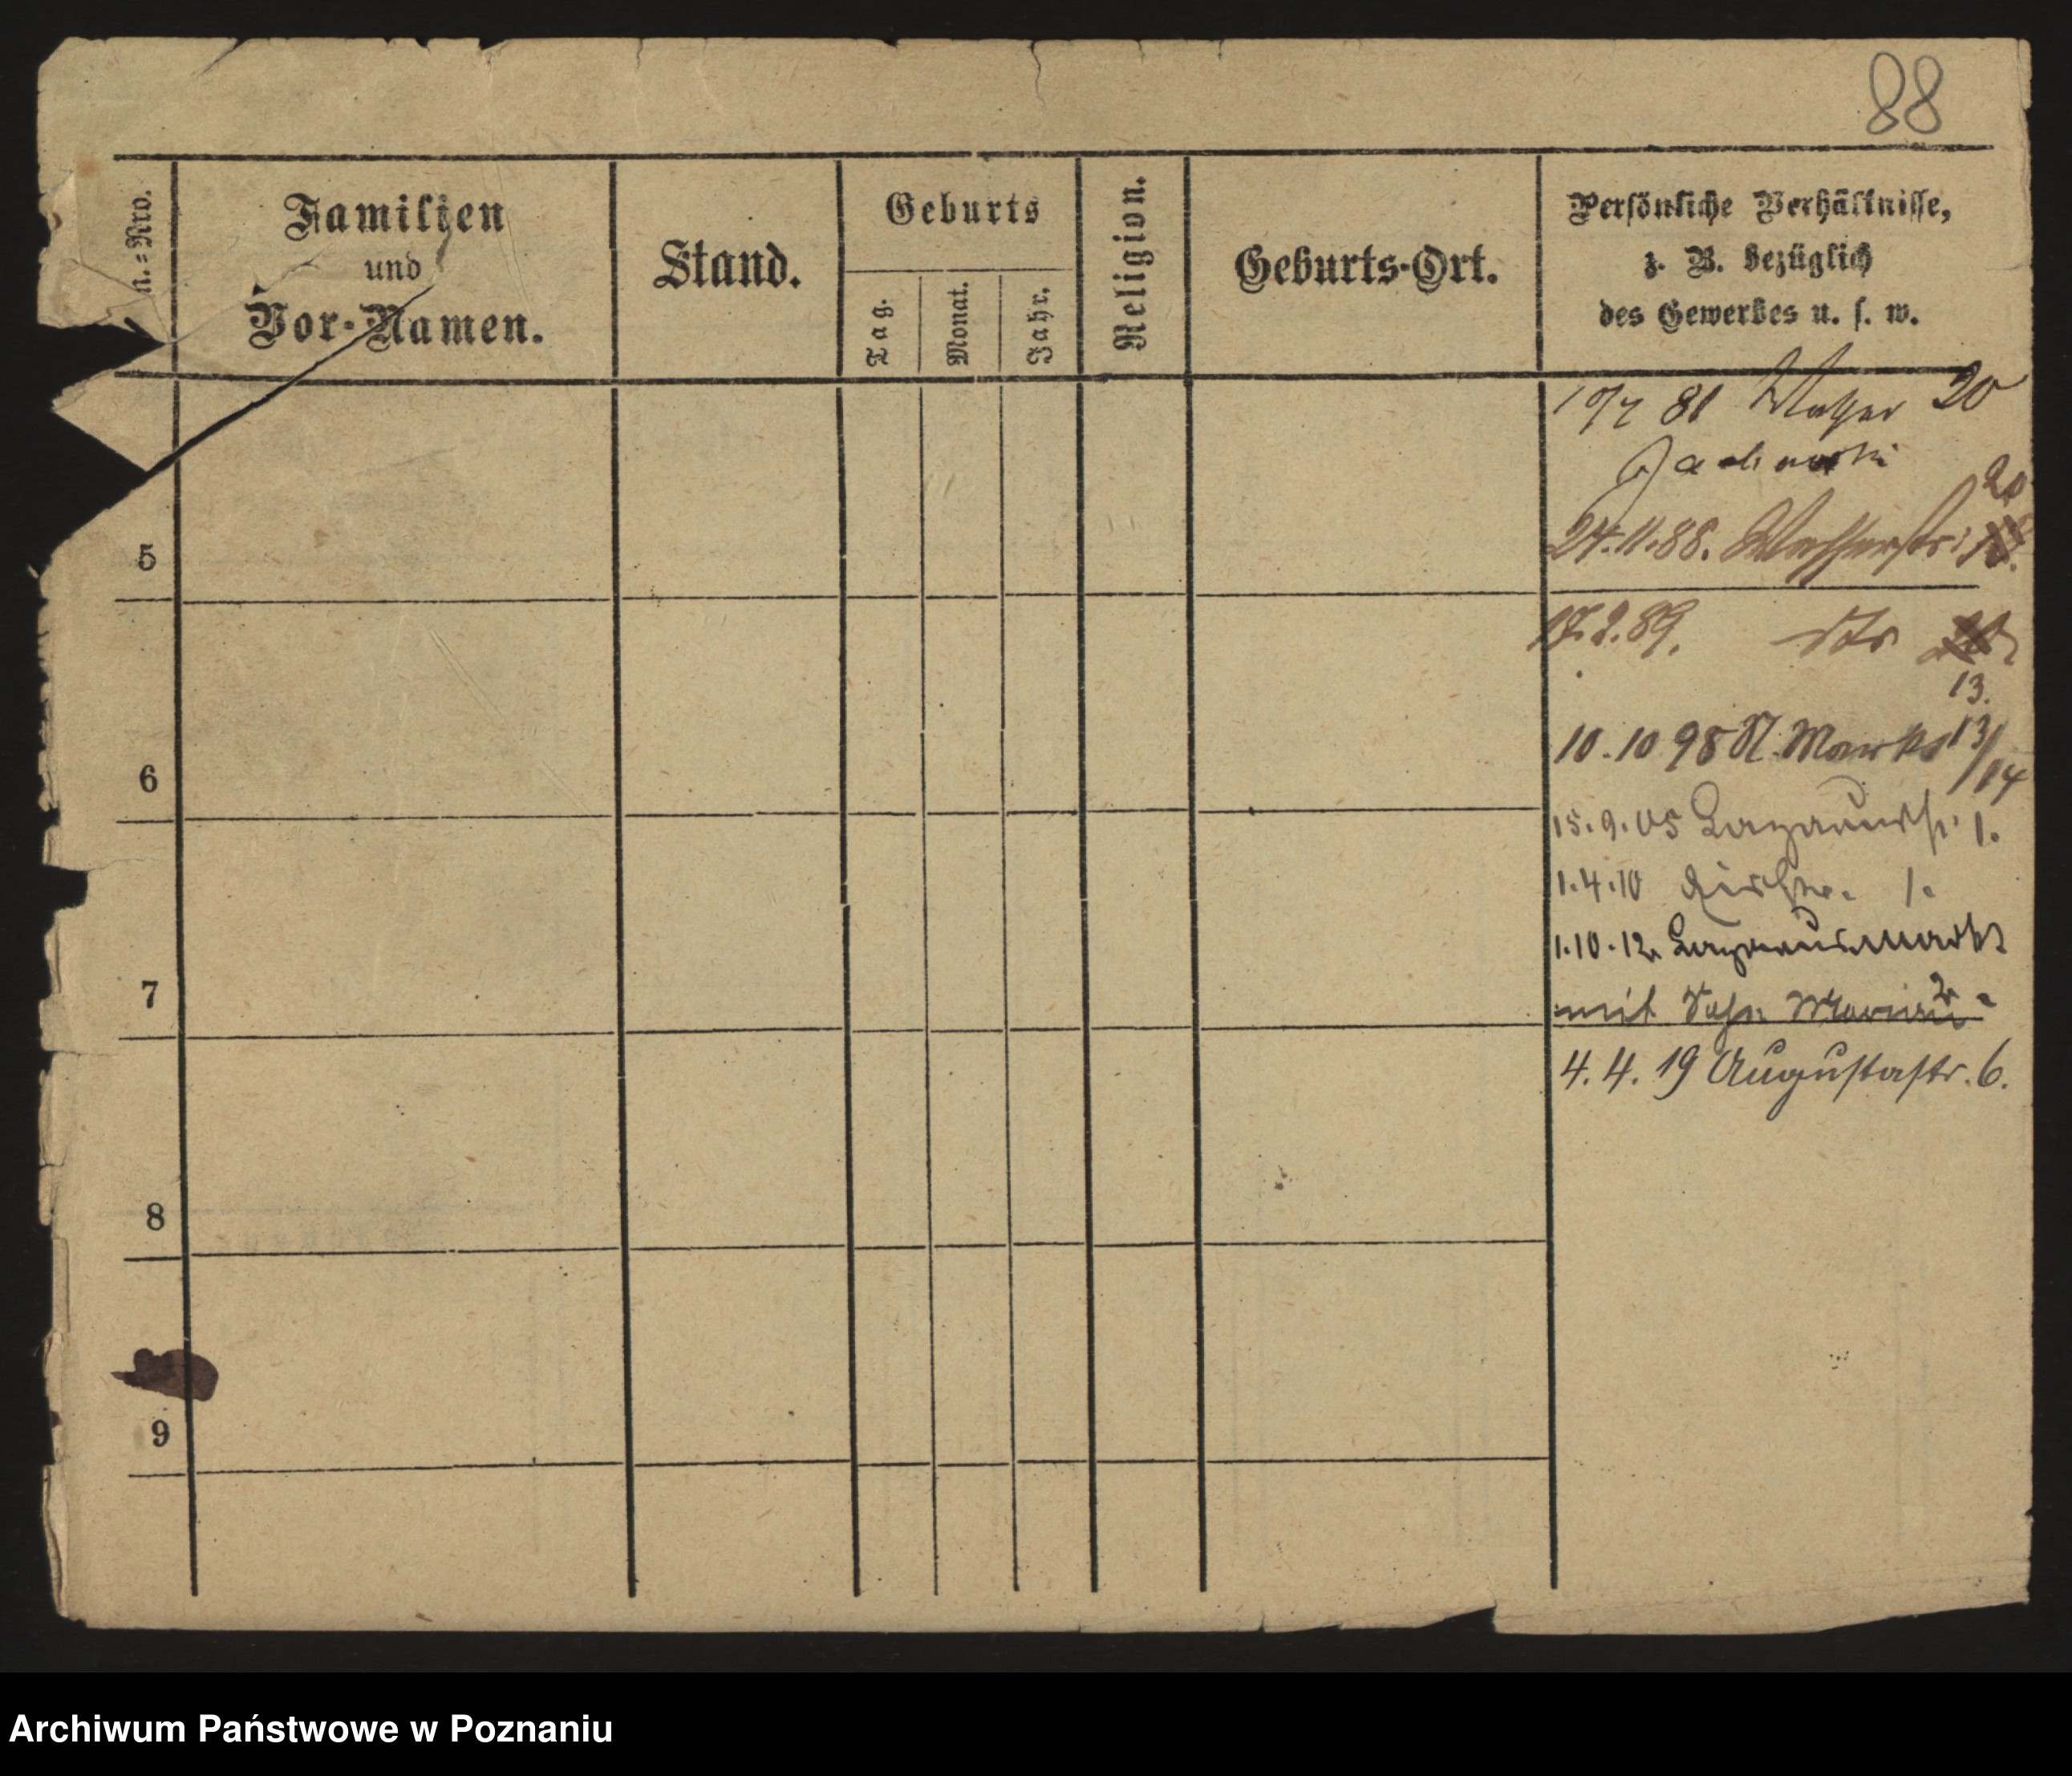 88
n.=Nro.
Familien
und
Vor-Namen.
Stand.
Geburts
Tag.
Monat.
Jahr.
Religion.
Geburts-Ort.
Persönliche Verhältnisse,
z. B. bezüglich
des Gewerbes u. s. w.
81 20
20
24.11.88.
5
17.2.89.
13.
10.10 98 Markt 13/14
6
15.9.05 Lazarusstr. 1.
1.4.10 1.
1.10.12 Lazarusmarkt
2.
7
mit Sohn Marian
4. 4. 19 Augustastr. 6.
8
9
Archiwum Państwowe w Poznaniu